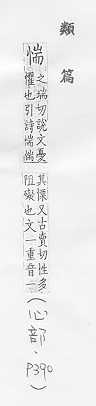 類篇
惴
之瑞切說文憂
懼也引詩惴惴
其慄又古賣切性多
阻礙也文一重音二
(心部‧P390)